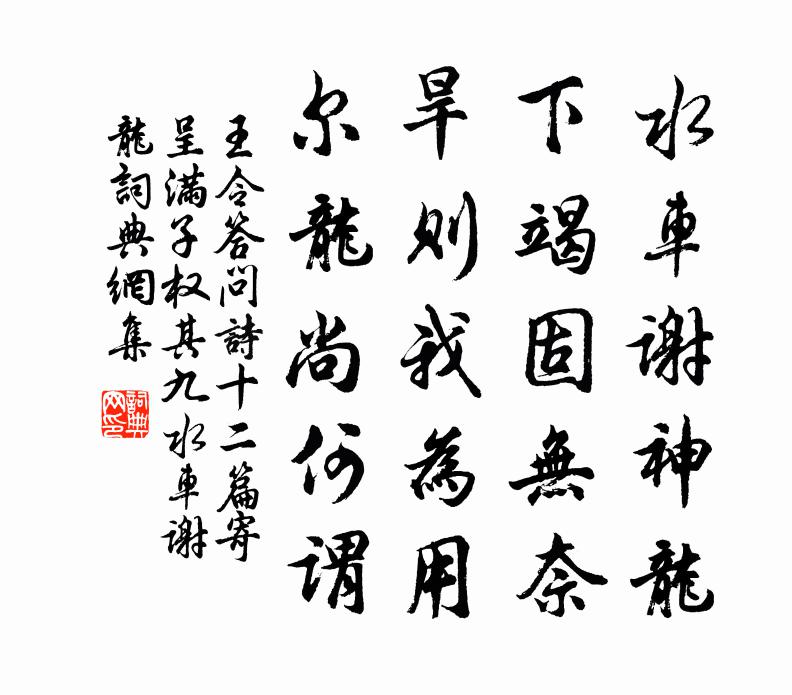 水車謝神龍
下竭固無奈
旱則我為用
尔龍尚何謂
王令答問詩十二篇寄
呈滿子权其九水車謝
龍詞典網集
詞典网印